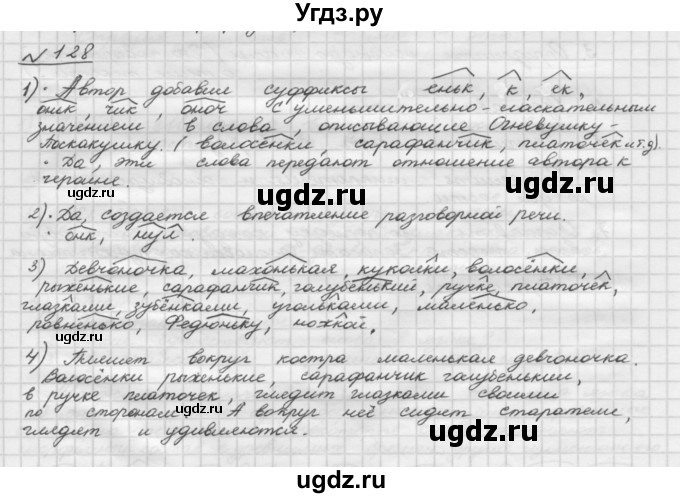 Угдз.ру
№128
1)· Автор добавил суффиксы еньк, к, ек,
оник, чик, оноч с уменьшительно-ласкательным
значением в слова, описывающие Огневушку-
Поскакушку. (волосёнки, сарафанчик, платочек и т.д).
· Да, эти слова передают отношение автора к
героине.
2)· Да, создается впечатление разговорной речи.
· онк, нул.
3) Девчоночка, махонькая, куколки, волосёнки,
рыженькие, сарафанчик, голубенький, ручке, платочек,
глазками, зубёнками, угольками, маленько,
ровненько, Федюньку, ножкой.
4) Пляшет вокруг костра маленькая девчоночка.
Волосёнки рыженькие, сарафанчик голубенький,
в ручке платочек, глядит глазками своими
по сторонам. А вокруг неё сидят старатели,
глядят и удивляются.
ugdz.ru
ugdz.ru
ugdz.ru
ugdz.ru
ugdz.ru
ugdz.ru
ugdz.ru
ugdz.ru
ugdz.ru
ugdz.ru
ugdz.ru